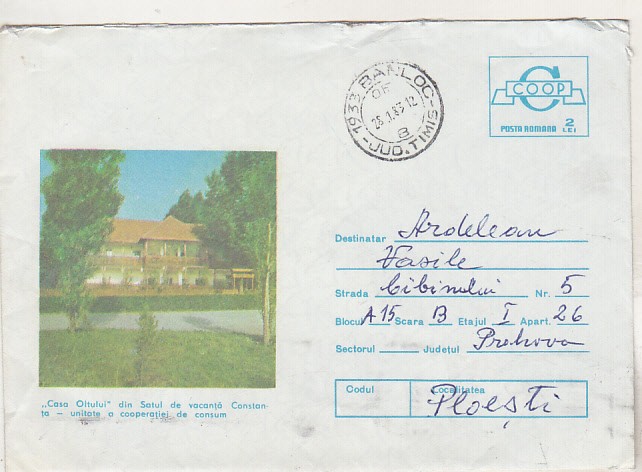 1933 BANLOC - JUD. TIMIȘ
OF
28.1.83.12
8
COOP
POSTA ROMANA 2 LEI
Destinatar Ardelean
Vasile
Strada Cibinului Nr. 5
Blocul A15 Scara B Etajul I Apart. 26
Sectorul Județul Prahova
Codul Localitatea
Ploești
,,Casa Oltului" din Satul de vacanță Constan-
ța – unitate a cooperației de consum